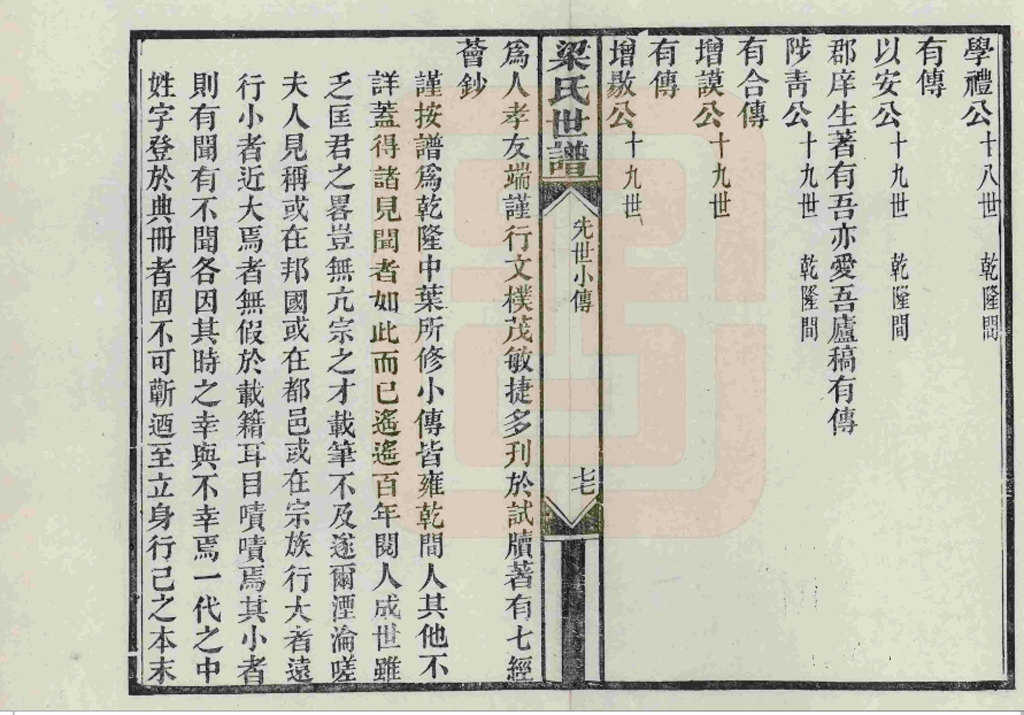 學禮公十八世　乾隆間
有傳
以安公十九世　乾隆間
郡庠生著有吾亦愛吾廬稿有傳
陟靑公十九世　乾隆間
有合傳
增謨公十九世
有傳
增敭公十九世
梁氏世譜
先世小傳
七七
爲人孝友端謹行文樸茂敏捷多刋於試牘著有七經
薈鈔
謹按譜爲乾隆中葉所修小傳皆雍乾間人其他不
詳蓋得諸見聞者如此而已遙遙百年閱人成世雖
乏匡君之畧豈無亢宗之才載筆不及遂爾湮淪嗟
夫人見稱或在邦國或在都邑或在宗族行大者遠
行小者近大焉者無假於載籍耳目嘖嘖焉其小者
則有聞有不聞各因其時之幸與不幸焉一代之中
姓字登於典冊者固不可蘄迺至立身行己之本末